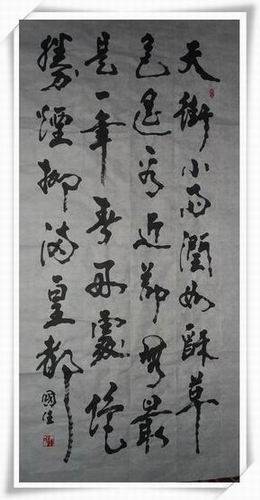 天街小雨潤如酥草
色遥看近却無最
是一年春好處絕
勝煙柳滿皇都
國